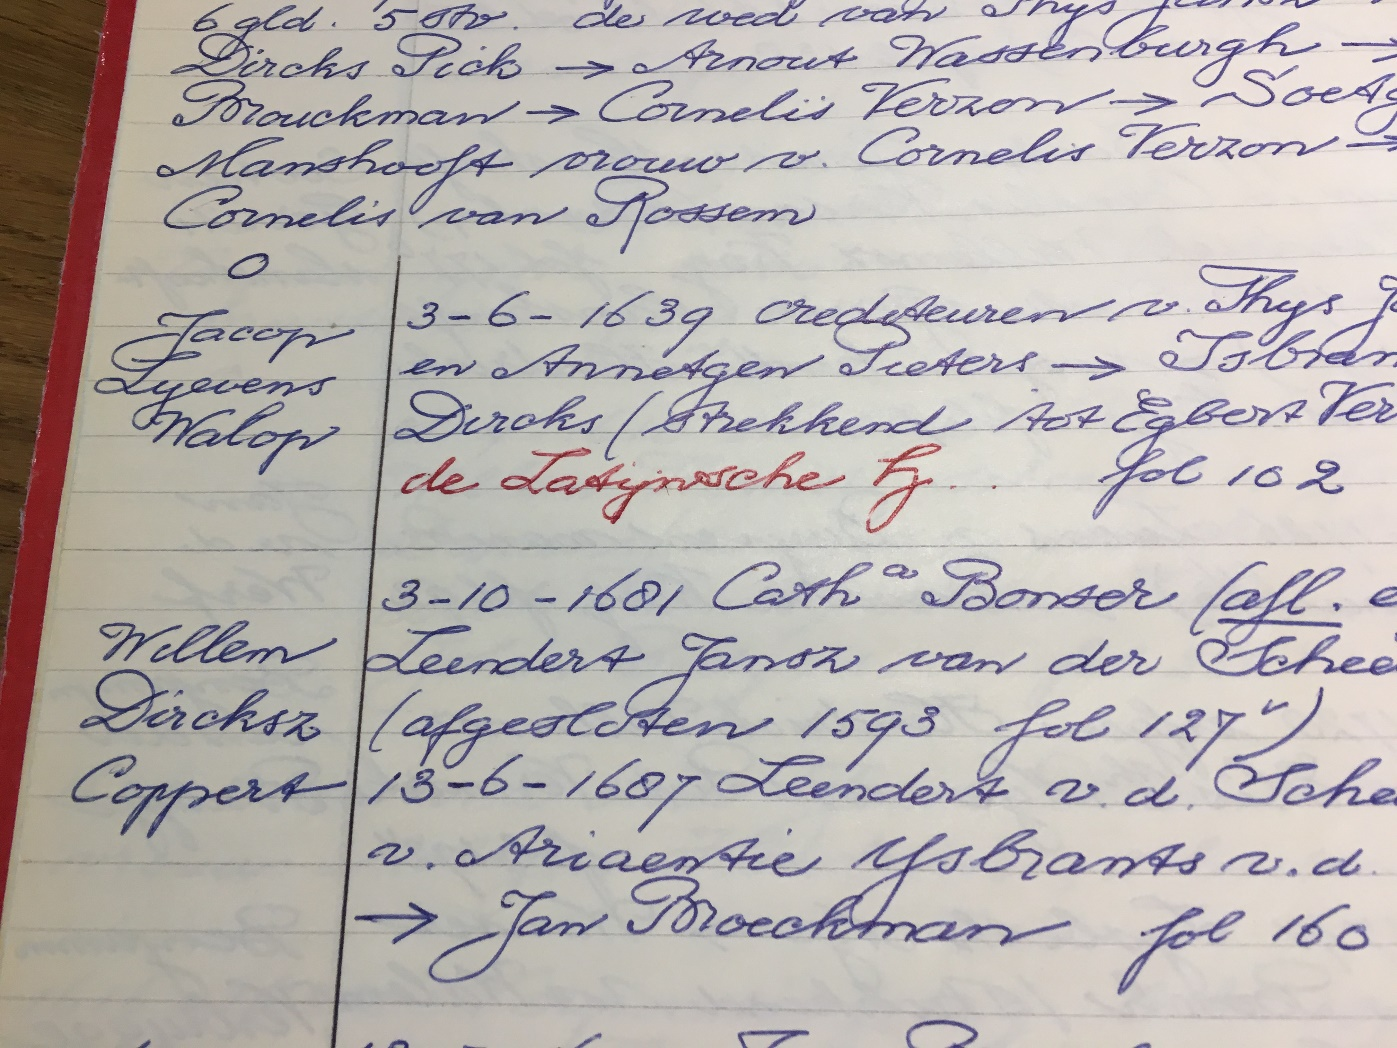 6 gld. 5 stv. de wed van Thys Jansz
Dircks Pick → Arnout Wassenburgh →
Brouckman → Cornelis Verzon → Soetg
Manshooft vrouw v. Cornelis Verzon →
Cornelis van Rossem
O
Jacop
Lyevens
Walop
3-6-1639 crediteuren v. Thys J
en Annetgen Pieters → Isbran
Dircks (strekkend tot Egbert Ver
de Latijnsche
fol 102
Willem
Dircksz
Coppert
3-10-1681 Cath a Bonser (afl. e
Leendert Jansz van der Schee
(afgesloten 1593 fol 127v)
13-6-1687 Leendert v. d. Sche
v. Ariaentie Ysbrants v. d.
→ Jan Broeckman fol 160